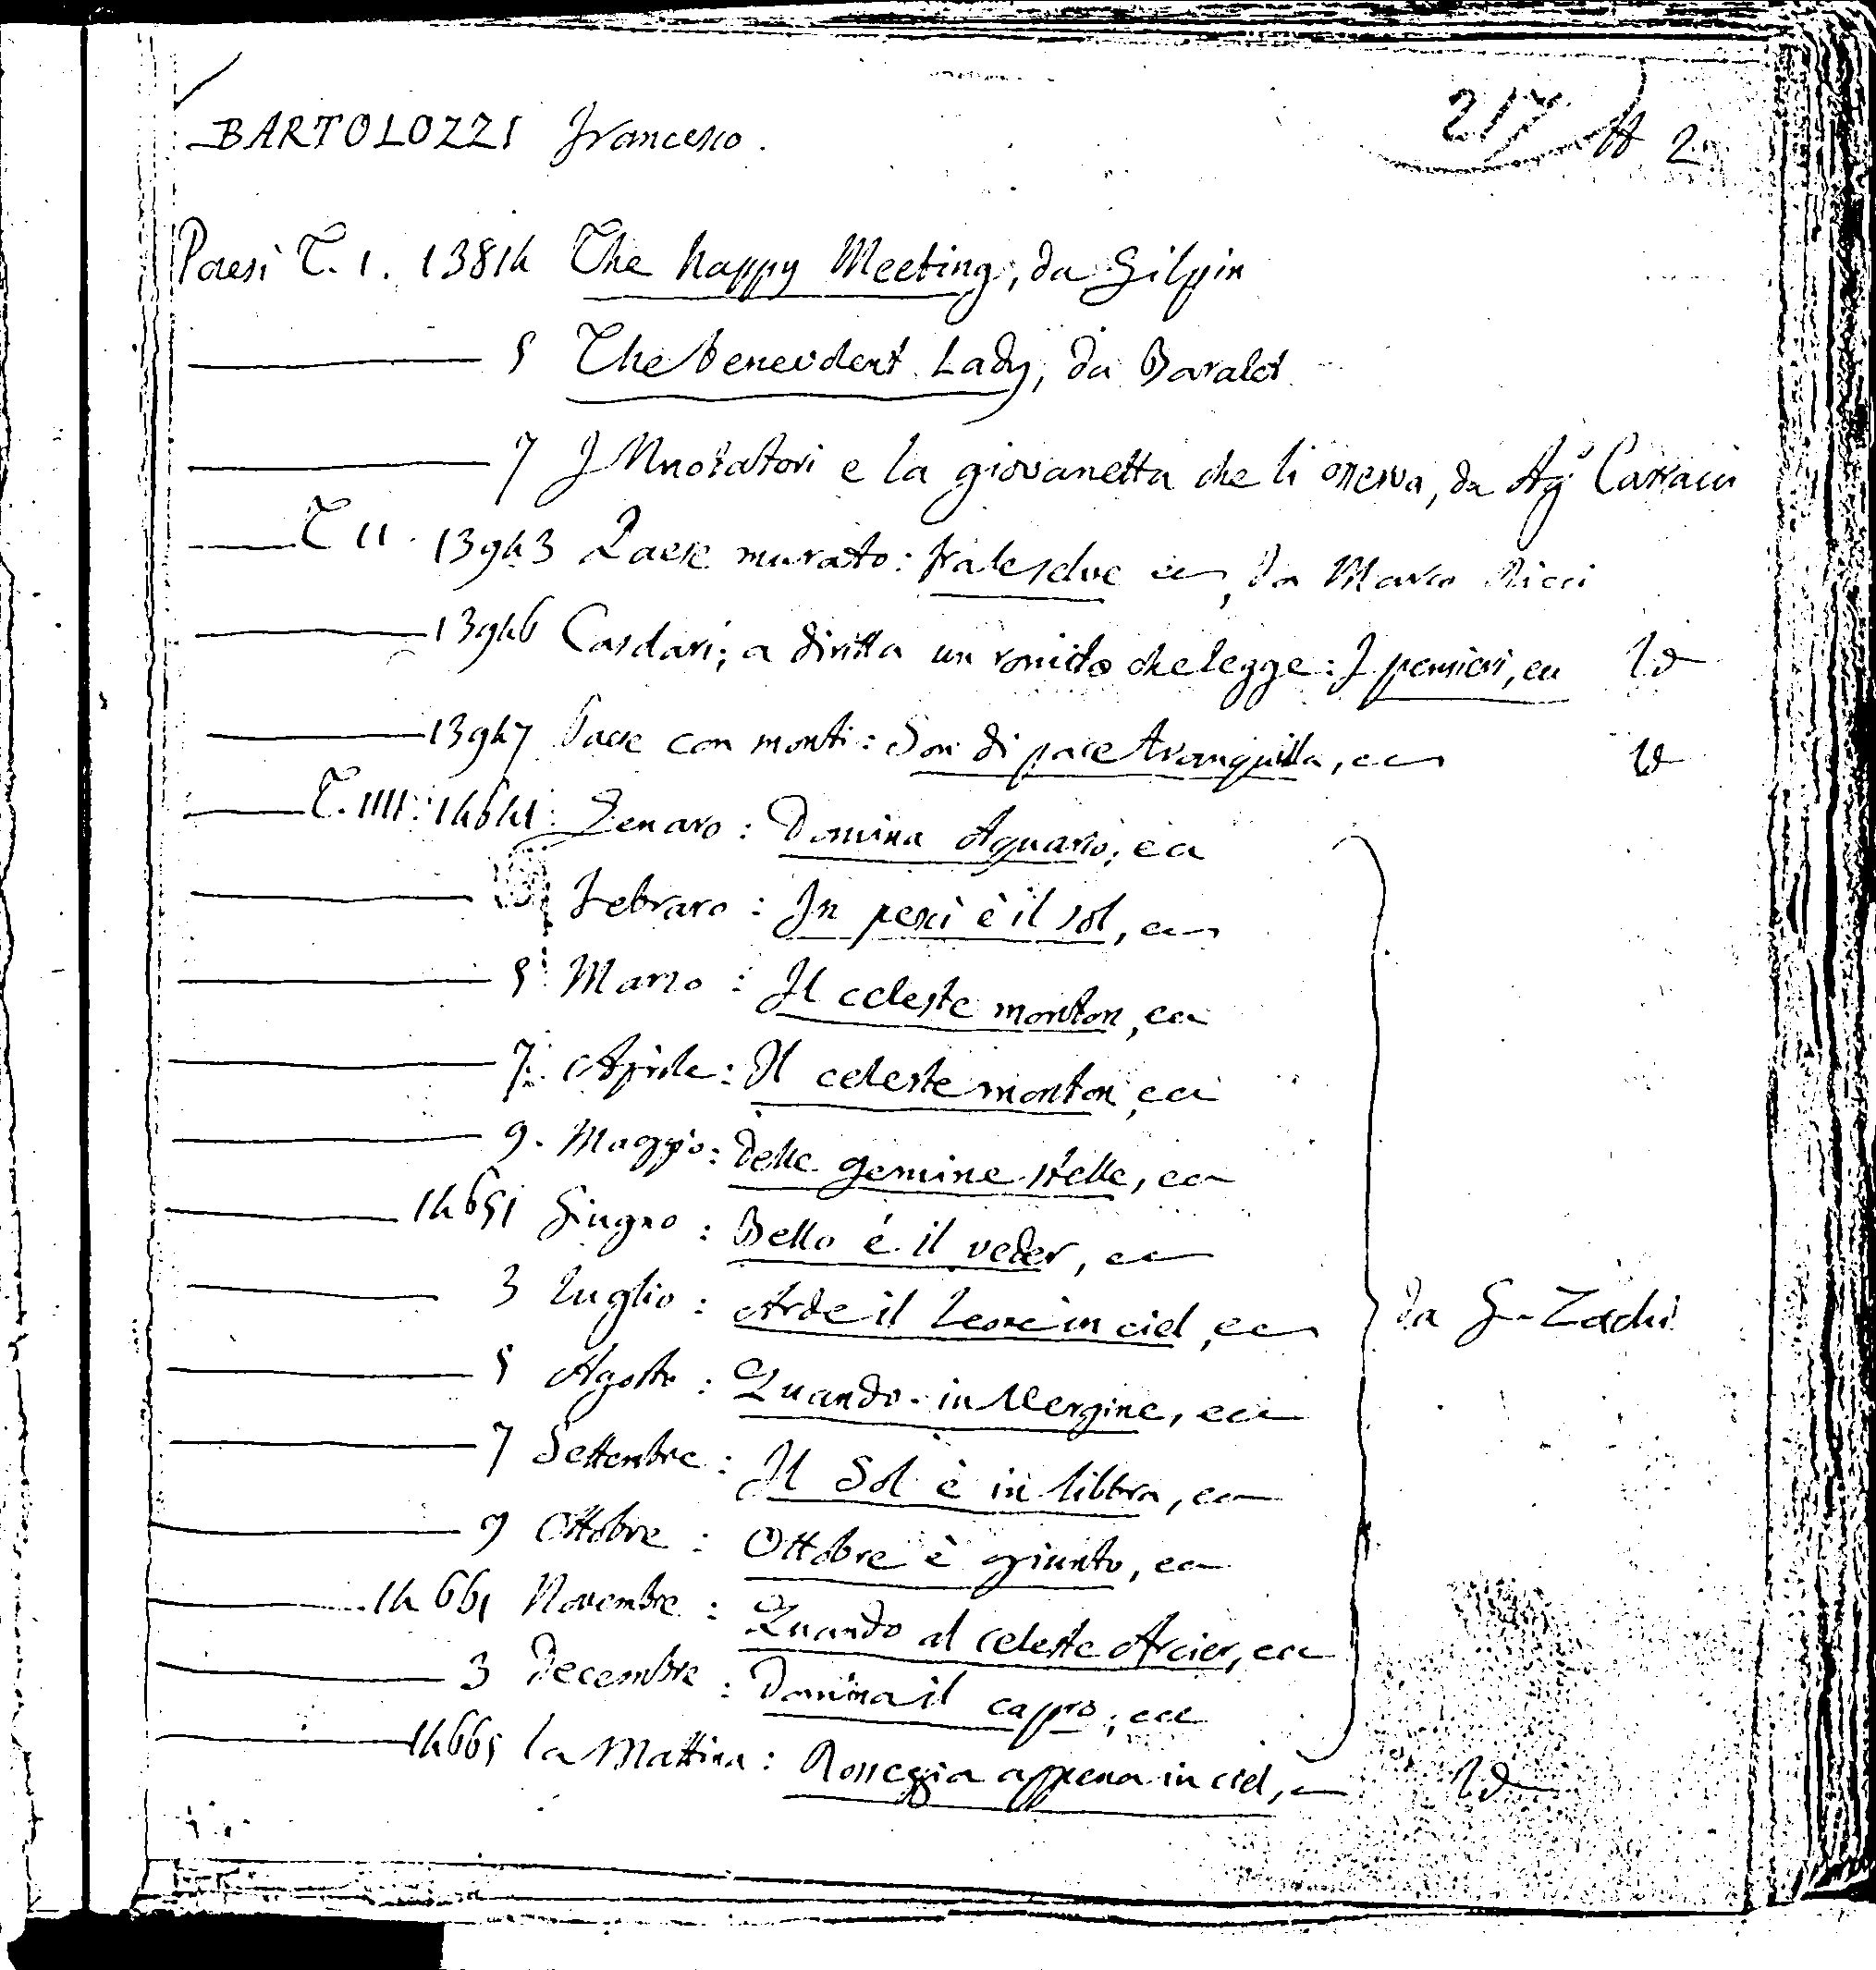 BARTOLOZZI Francesco. 217 2
Paesi T. 1. 13814 The happy Meeting, da Gilpin
5 The benevolent Lady, da Baralet
7 I Nuotatori e la giovanetta che li osserva, da Ag.º Carracci
T II. 13943 Paese murato: fra le selve ecc, da Marco Ricci
13946 Casolari; a diritta un romito che legge: I pensieri, ecc Id
13947 Paese con monti: Son di pace tranquilla, ecc Id
T. IIII. 14641 Genaro: Domina Aquario, ecc
Febraro: In pesci è il sol, ecc
5 Marzo: Il celeste monton, ecc
7 Aprile: Il celeste monton, ecc
9. Maggio: Delle gemine stelle, ecc
14651 Giugno: Bello è il veder, ecc
3 Luglio: Arde il Leone in ciel, ecc da G. Zochi
5 Agosto: Quando in Vergine, ecc
7 Settembre: Il Sol è in libbra, ecc
9 Ottobre: Ottobre è giunto, ecc
14661 Novembre: Quando al celeste Arcier, ecc
3 Decembre: Domina il capro, ecc
14665 La Mattina: Rosseggia appena in ciel, ecc Id